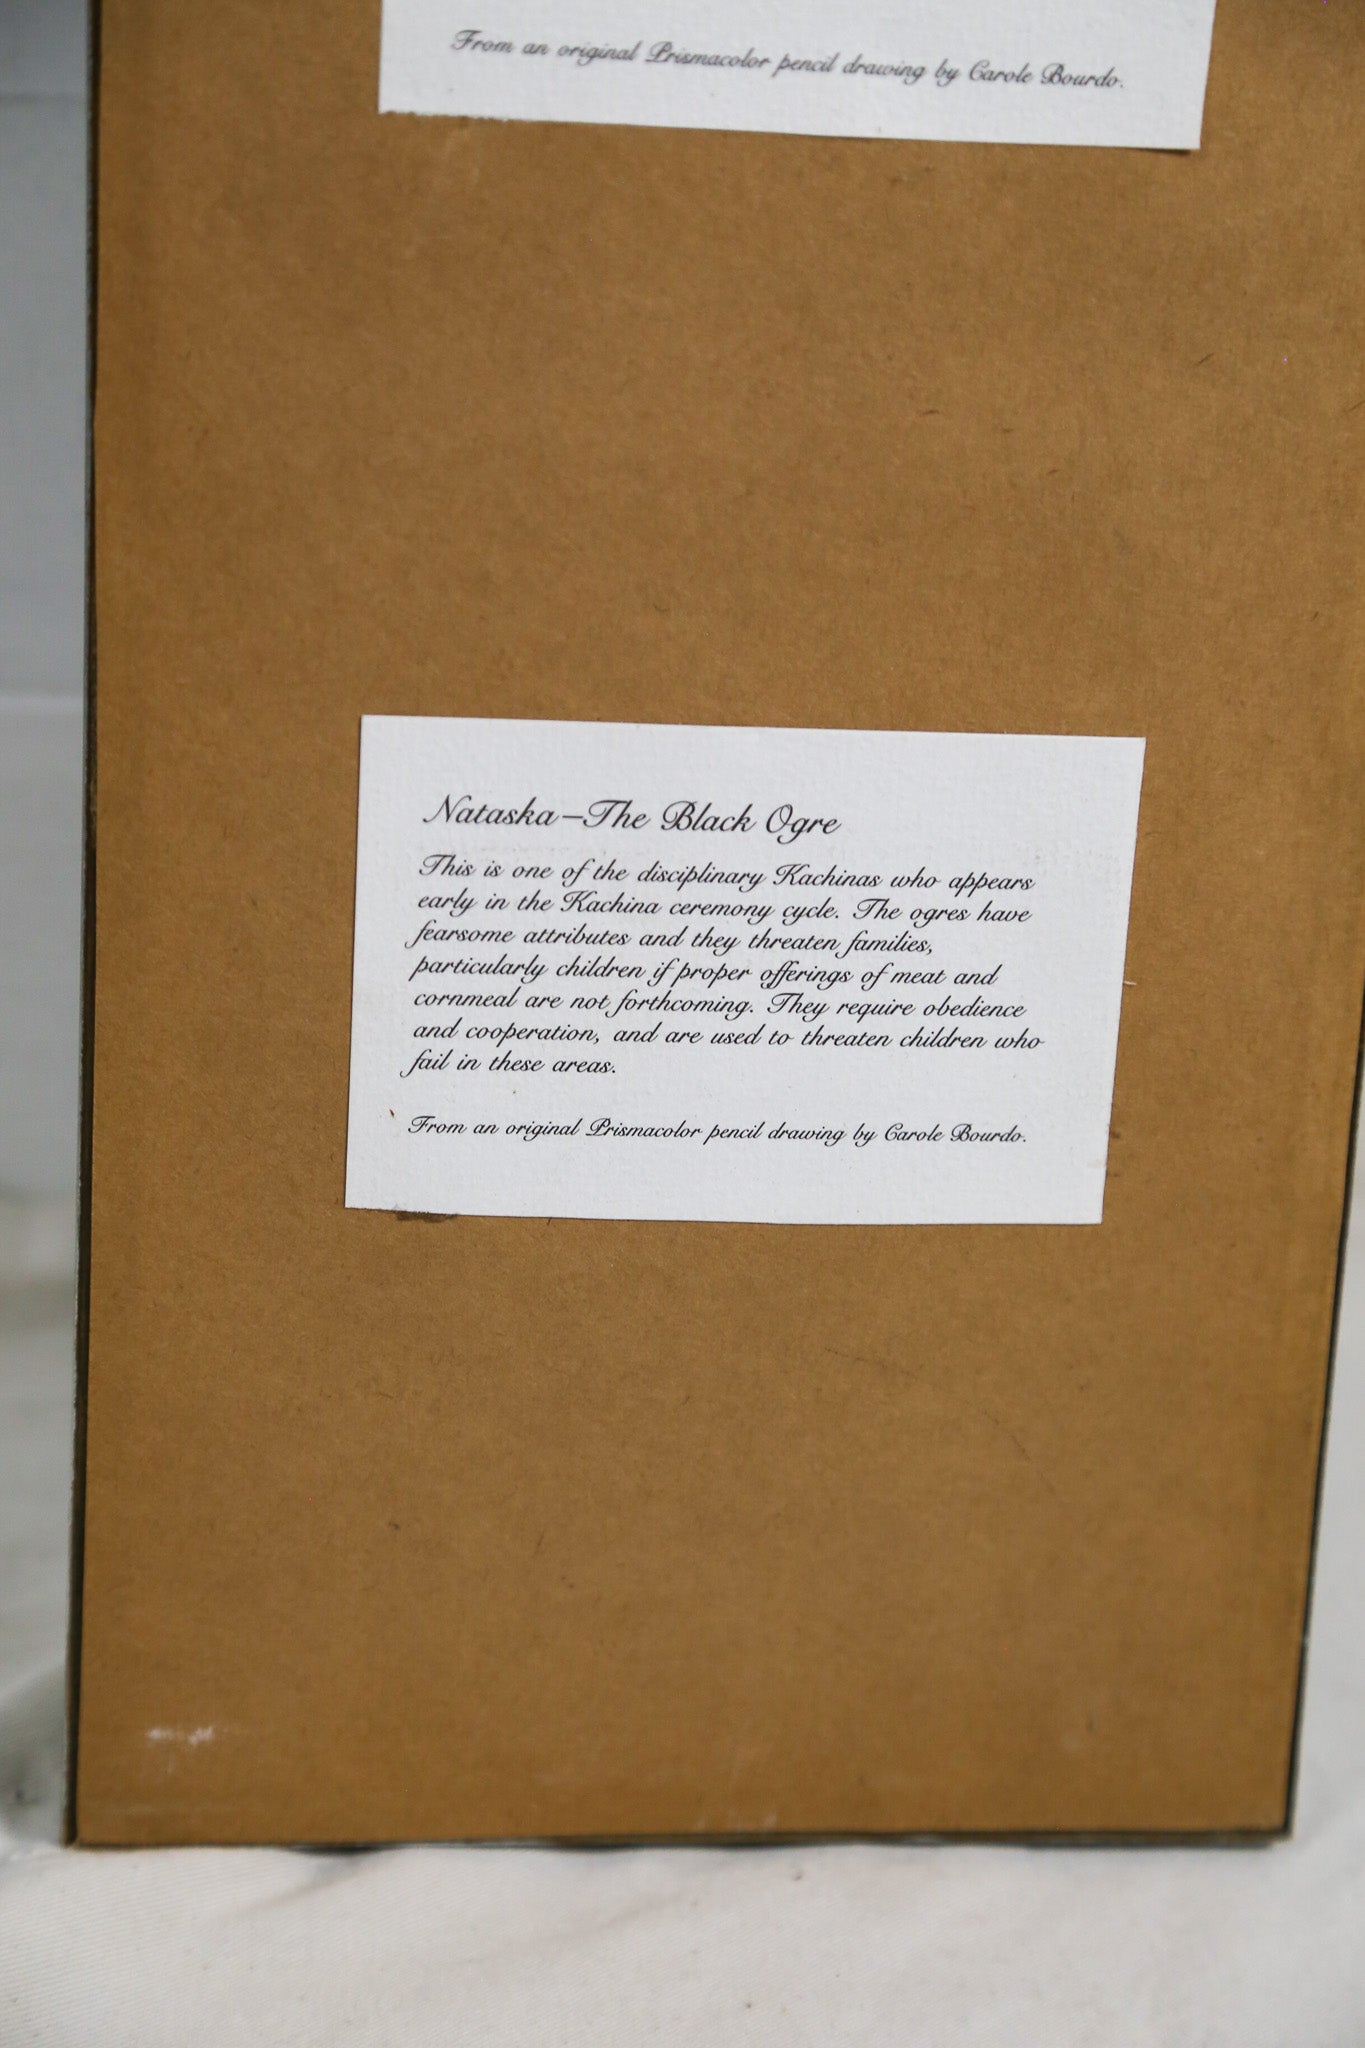 From an original Prismacolor pencil drawing by Carole Bourdo.
Nataska—The Black Ogre
This is one of the disciplinary Kachinas who appears
early in the Kachina ceremony cycle. The ogres have
fearsome attributes and they threaten families,
particularly children if proper offerings of meat and
cornmeal are not forthcoming. They require obedience
and cooperation, and are used to threaten children who
fail in these areas.
From an original Prismacolor pencil drawing by Carole Bourdo.